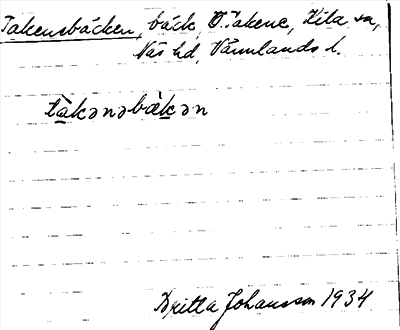 Takenebäcken, bäck, Ö. Takene, Kila sn,
Näs hd, Värmlands l.
tàkənəbæ̀kən
Britta Johansson 1934